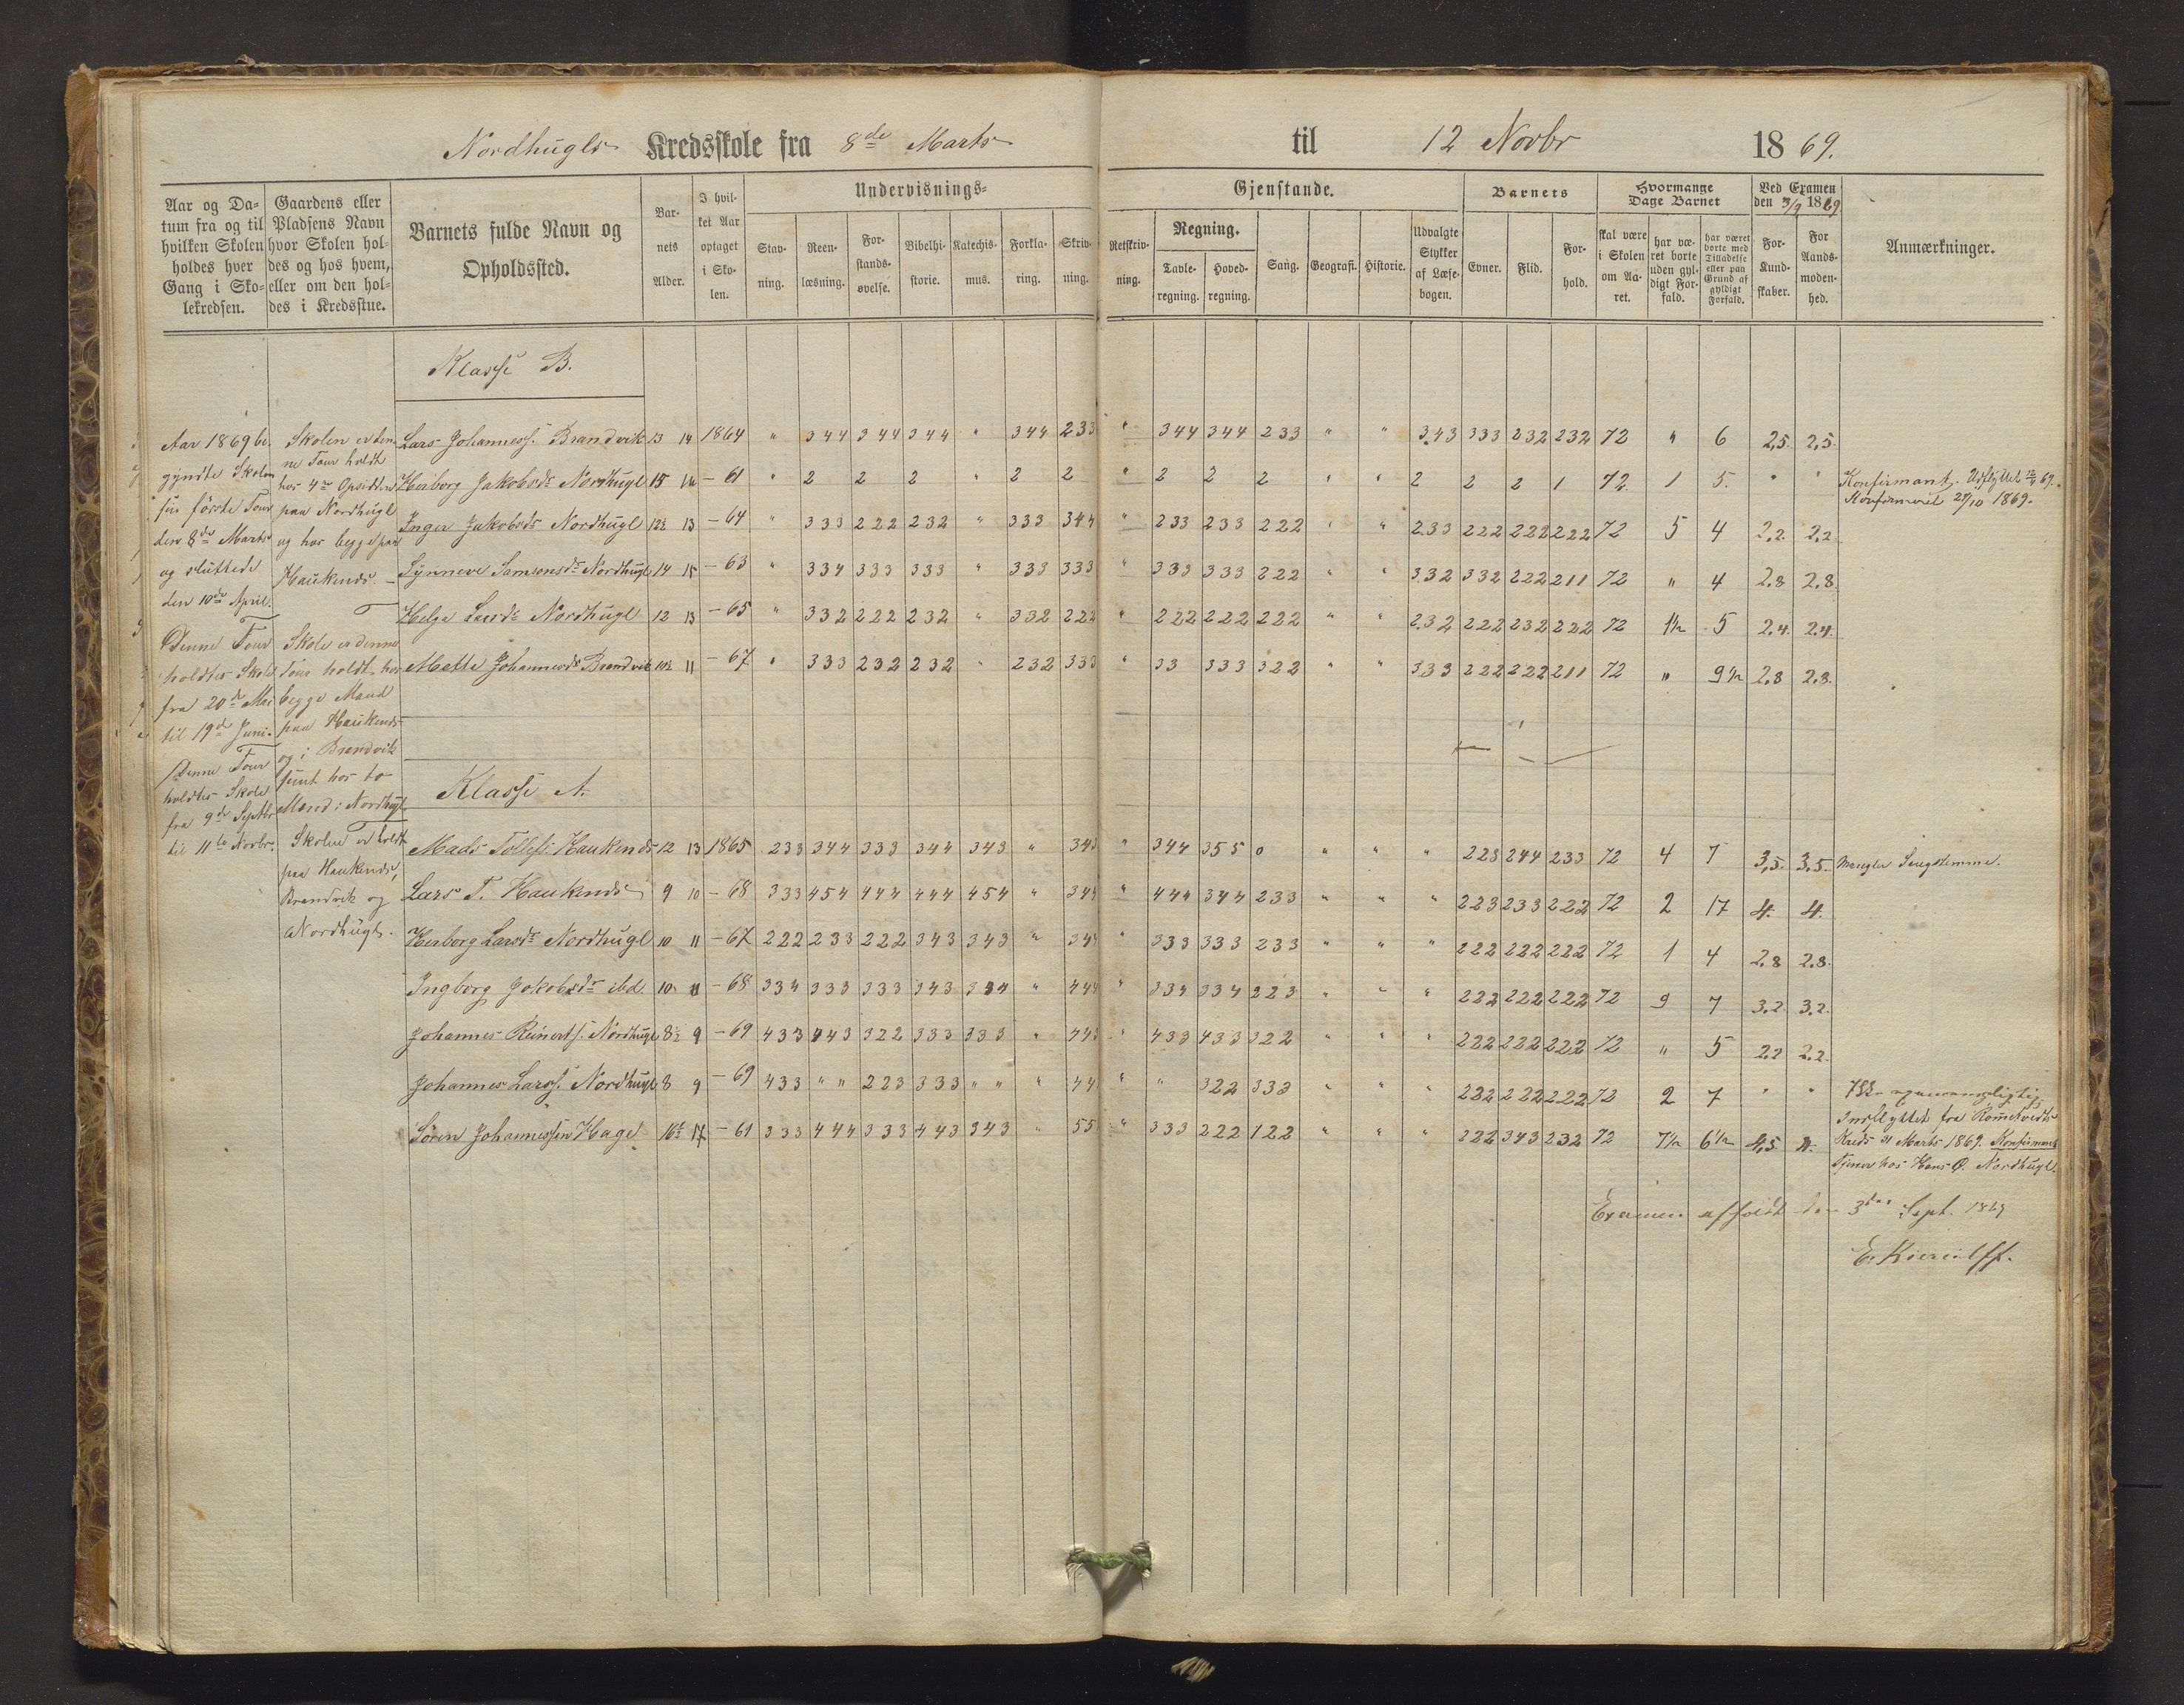 Nordhugls Kredsskole fra 8de Marts til 12 Novbr 1869.
Aar og Da-
tum fra og til
hvilken Skolen
holdes hver
Gang i Sko-
lekredsen.
Gaardens eller
Pladsens Navn
hvor Skolen hol-
des og hos hvem,
eller om den hol-
des i Kredsstue.
Barnets fulde Navn og
Opholdssted.
Bar-
nets
Alder.
I hvil-
ket Aar
optaget
i Sko-
len.
Undervisnings-
Stav-
ning.
Reen-
læsning.
For-
stands-
øvelse.
Bibelhi-
storie.
Katechis-
mus.
Forkla-
ring.
Skriv-
ning.
Gjenstande.
Retskriv-
ning.
Regning.
Tavle-
regning.
Hoved-
regning.
Sang.
Geografi.
Historie.
Udvalgte
Stykker
af Læse-
bogen.
Barnets
Evner.
Flid.
For-
hold.
Hvormange
Dage Barnet
skal være
i Skolen
om Aa-
ret.
har væ-
ret borte
uden gyl-
digt For-
fald.
har været
borte med
Tilladelse
eller paa
Grund af
gyldigt
Forfald.
Ved Examen
den 3/9 1869
For-
Kund-
skaber.
For
Aands-
moden-
hed.
Anmærkninger.
Aar 1869 be-
gyndte Skolen
sin første Tour
den 8de Marts
og sluttede
den 10de April.
Denne Tour
holdtes Skole
fra 20de Mai
til 19de Juni.
Denne Tour
holdtes Skole
fra 9de Septbr
til 11te Novbr.
Skolen er den-
ne Tour holdt
hos 4re Opsiddere
paa Nordhugl
og hos begge paa
Haukends.
Skole er denne
Tour holdt hos
begge Mænd
paa Haukends
og i Brandvik
samt hos to
Mænd i Nordhugl
Skolen er holdt
paa Haukends,
Brandvik og
Nordhugl.
Klasse B.
Lars Johanness. Brandvik 13 14 1864 " 344 344 344 " 344 233 " 344 344 233 " " 343 333 232 232 72 " 6 2,5 2,5
Herborg Jakobsdr Nordhugl 15 – 61 " 2 2 2 " 2 2 " 2 2 2 " " 2 2 2 1 72 1 5 " " Konfirmant. Udflyttet 69.
Konfirmeret 27/10 1869.
Inger Jakobsdr Nordhugl 12½ 13 – 64 " 333 222 232 " 333 344 " 233 233 222 " " 233 222 222 222 72 5 4 2,2 2,2
Synneve Samsonsdr Nordhugl 14 15 – 63 " 334 333 333 " 333 333 " 333 333 222 " " 332 332 222 211 72 " 4 2,8 2,8
Helga Larsdr Nordhugl 12 13 – 65 " 332 222 232 " 332 222 " 222 222 222 " " 232 222 232 222 72 1½ 5 2,4 2,4
Mette Johannesdr Brandvik 10½ 11 – 67 " 333 232 232 " 232 333 " 33 333 322 " " 333 222 222 211 72 " 9½ 2,8 2,8
Klasse A.
Mads Tollefs. Haukends 12 13 1865 233 344 333 344 343 " 343 " 344 355 0 " " " 223 244 233 72 4 7 3,5 3,5 Mangler Sangstemme.
Lars T. Haukends 9 10 – 68 333 454 444 444 454 " 344 " 444 344 233 " " " 223 233 222 72 2 17 4 4
Herborg Larsdr Nordhugl 10 11 – 67 222 233 222 343 343 " 344 " 333 333 233 " " " 222 222 222 72 1 4 2,8 2,8
Ingborg Jakobsdr ibd 10 11 – 68 334 333 333 343 334 " 444 " 334 334 223 " " " 222 222 222 72 9 7 3,2 3,2
Johannes Reinerts. Nordhugl 8½ 9 – 69 433 443 322 333 333 " 443 " 433 433 322 " " " 222 222 222 72 " 5 2,2 2,2
Johannes Larss. Nordhugl 8 9 – 69 433 " " 223 333 " " " 44 " " 322 333 " " " 222 222 222 72 2 7 " "
Søren Johannessen Hage 16½ 17 – 61 333 444 333 443 343 " 55 " 333 222 122 " " " 222 343 232 72 7½ 6½ 4,5 4
Indflyttet fra Rømetvedts
Kreds 31 Marts 1869. Konfirmant
Tjener hos Hans O. Nordhugl.
Examen afholdt den 3die Sept. 1869